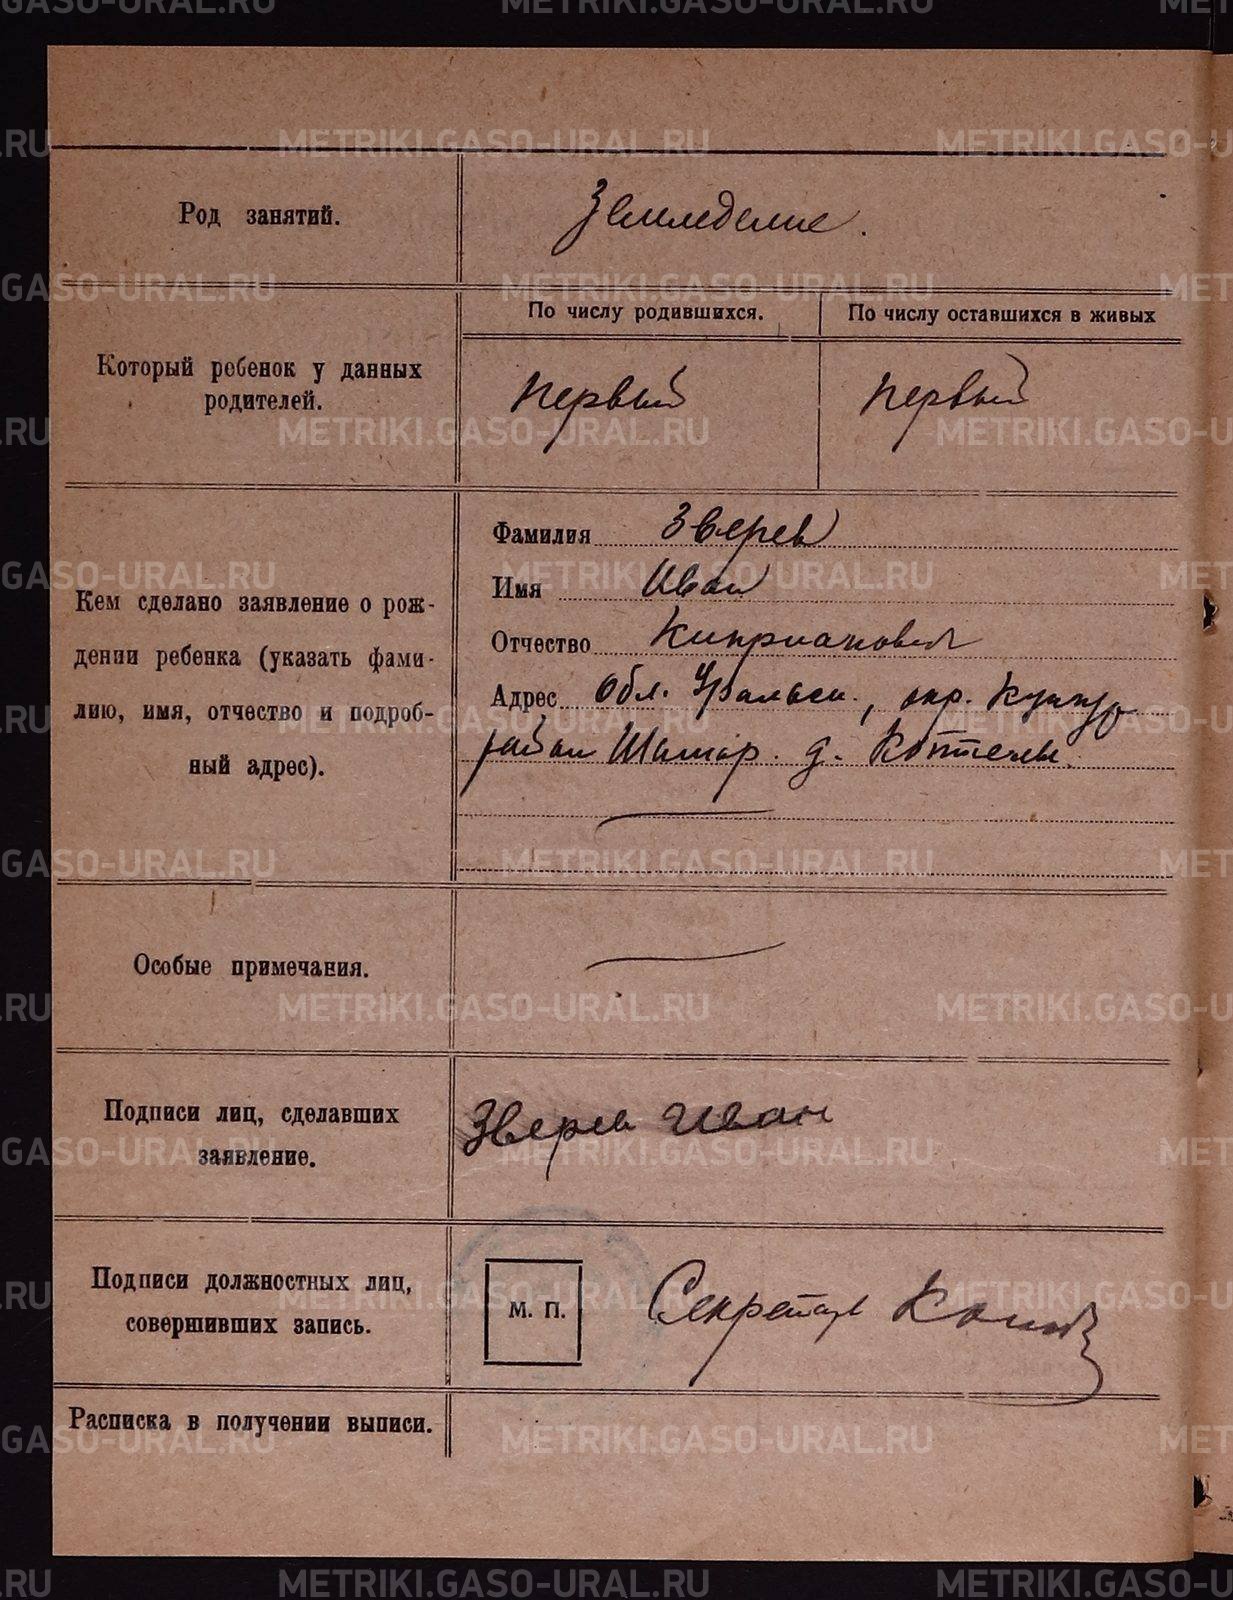 Род занятий.
Земледелие.
Который ребенок у данных
родителей.
По числу родившихся.
По числу оставшихся в живых
первый
первый
Кем сделано заявление о рож-
дении ребенка (указать фами-
лию, имя, отчество и подроб-
ный адрес).
Фамилия Зверев
Имя Иван
Отчество Киприанович
Адрес Обл. Уральск., окр. Кунгур
район Шамар. д.
Особые примечания.
Подписи лиц, сделавших
заявление.
Зверев Иван
Подписи должностных лиц,
совершивших запись.
М. П.
Секретарь
Расписка в получении выписи.
METRIKI.GASO-URAL.RU